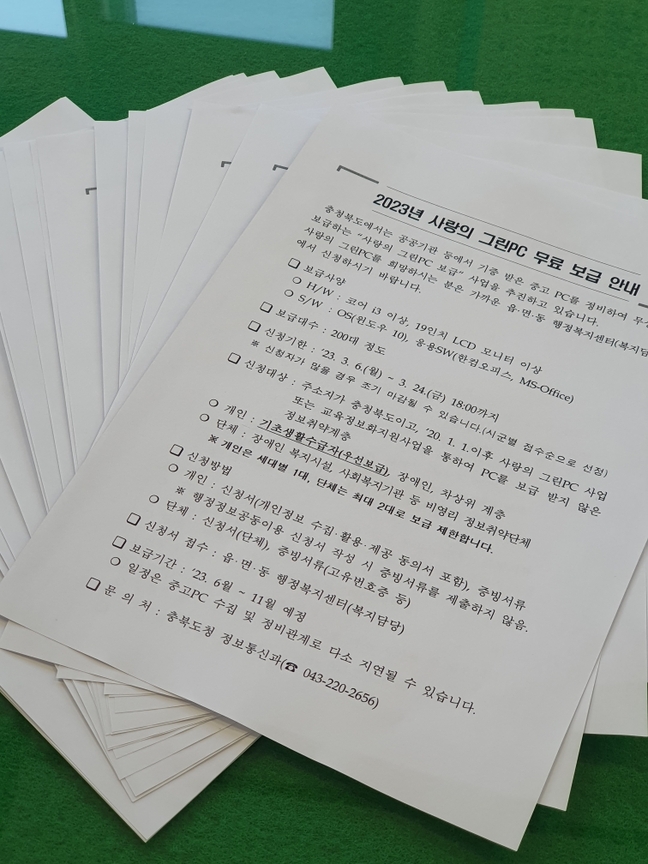 2023년 사랑의 그린PC 무료 보급 안내
충청북도에서는 공공기관 등에서 기증 받은 중고 PC를 정비하여 무상
보급하는 "사랑의 그린PC 보급" 사업을 추진하고 있습니다.
사랑의 그린PC를 희망하시는 분은 가까운 읍·면·동 행정복지센터(복지담당)
에서 신청하시기 바랍니다.
❏ 보급사양
❍ H/W : 코어 i3 이상, 19인치 LCD 모니터 이상
❍ S/W : OS(윈도우 10), 응용SW(한컴오피스, MS-Office)
❏ 보급대수 : 200대 정도
❏ 신청기한 : '23. 3. 6.(월) ~ 3. 24.(금) 18:00까지
※ 신청자가 많을 경우 조기 마감될 수 있습니다.(시군별 접수순으로 선정)
❏ 신청대상 : 주소지가 충청북도이고, '20. 1. 1.이후 사랑의 그린PC 사업
또는 교육정보화지원사업을 통하여 PC를 보급 받지 않은
정보취약계층
❍ 개인 : 기초생활수급자(우선보급), 장애인, 차상위 계층
❍ 단체 : 장애인 복지시설, 사회복지기관 등 비영리 정보취약단체
※ 개인은 세대별 1대, 단체는 최대 2대로 보급 제한합니다.
❏ 신청방법
❍ 개인 : 신청서(개인정보 수집·활용·제공 동의서 포함), 증빙서류
※ 행정정보공동이용 신청서 작성 시 증빙서류를 제출하지 않음.
❍ 단체 : 신청서(단체), 증빙서류(고유번호증 등)
❏ 신청서 접수 : 읍·면·동 행정복지센터(복지담당)
❏ 보급기간 : '23. 6월 ~ 11월 예정
❍ 일정은 중고PC 수집 및 정비관계로 다소 지연될 수 있습니다.
❏ 문 의 처 : 충북도청 정보통신과(☎ 043-220-2656)